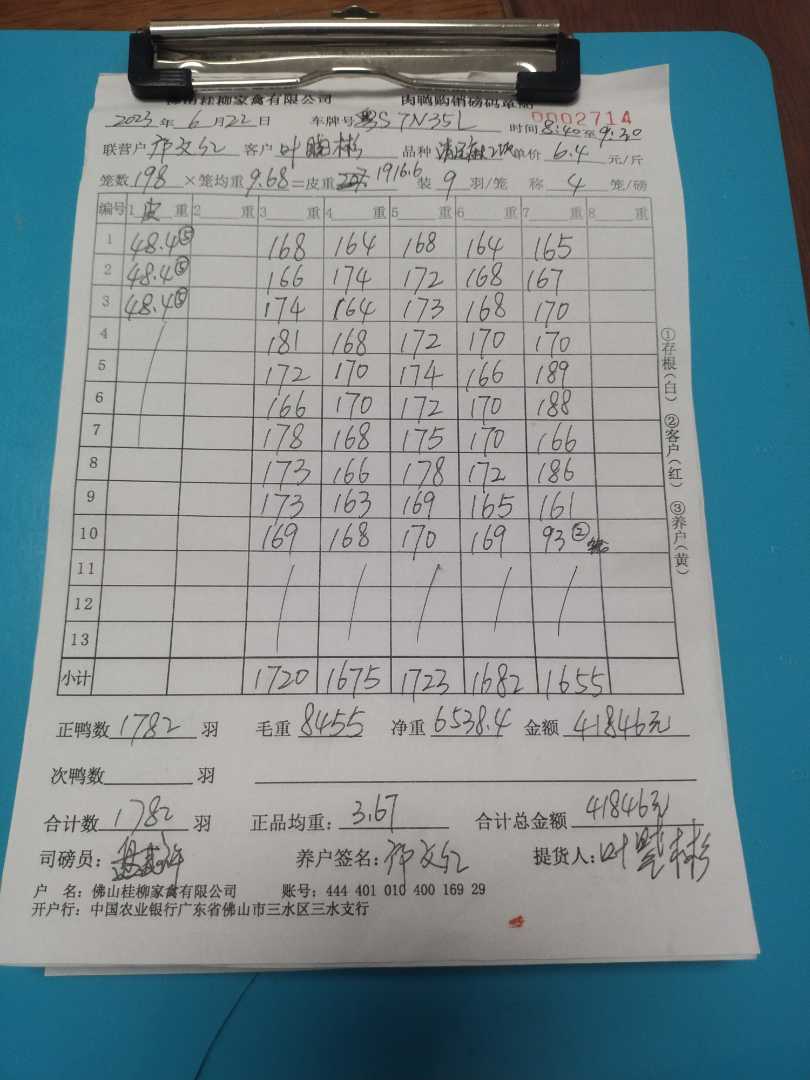 佛山桂柳家禽有限公司 肉鸭购销磅码单 0002714
2023年6月22日 车牌号 S7N35L 时间8:40至9:30
联营户 客户叶 彬 品种 单价6.4元/斤
笼数198×笼均重9.68=皮重1916.6 装9羽/笼 称4笼/磅
编号 1皮重 2重 3重 4重 5重 6重 7重 8重
1 48.4⑤ 168 164 168 164 165
2 48.4⑤ 166 174 172 168 167
3 48.4⑤ 174 164 173 168 170
4 181 168 172 170 170
5 172 170 174 166 189
6 166 170 172 170 188
7 178 168 175 170 166
8 173 166 178 172 186
9 173 163 169 165 161
10 169 168 170 169 93②笼
11
12
13
小计 1720 1675 1723 1682 1655
①存根(白) ②客户(红) ③养户(黄)
正鸭数1782羽 毛重8455 净重6538.4 金额41846元
次鸭数 羽
合计数1782羽 正品均重:3.67 合计总金额41846元
司磅员: 养户签名: 提货人:叶 彬
户 名:佛山桂柳家禽有限公司 账号:444 401 010 400 169 29
开户行:中国农业银行广东省佛山市三水区三水支行